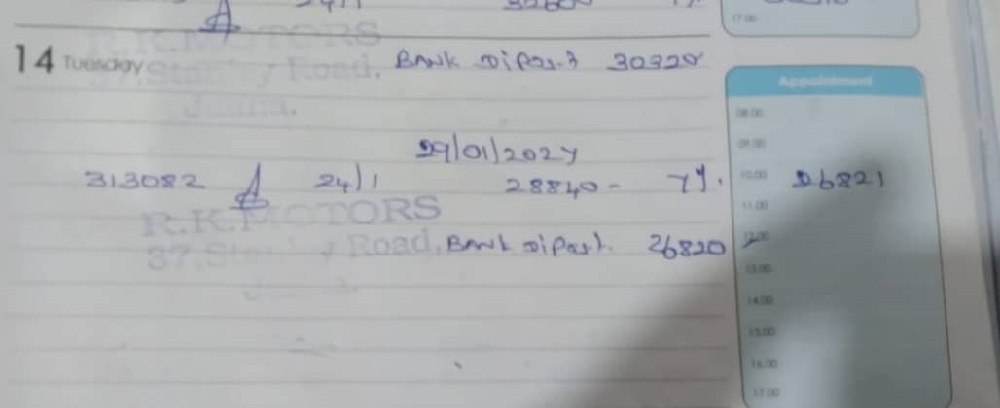 24/1
14 Tuesday BANK Dipos.t 30320
R.K.MOTORS
37, Road,
Appointment
08.00
09.00
29/01/2024
313082 24/1 28840- 7%. 10.00 26821
11.00
R.K.MOTORS
37, Road, BANK Dipost. 26820
12.00
13.00
14.00
15.00
16.00
17.00
17.00